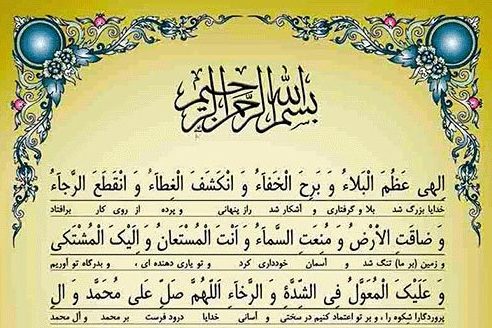 بسم الله الرحمن الرحیم
اِلهی عَظُمَ الْبَلاءُ وَ بَرِحَ الْخَفاءُ وَ انْکَشَفَ الْغِطاءُ وَ انْقَطَعَ الرَّجاءُ
خدایا بزرگ شد بلا و گرفتاری و آشکار شد راز پنهانی و پرده از روی کار برافتاد
وَ ضاقَتِ الْاَرْضُ وَ مُنِعَتِ السَّماءُ وَ اَنْتَ الْمُسْتَعانُ وَ اِلَیْکَ الْمُشْتَکی
و زمین (بر ما) تنگ شد و آسمان خودداری کرد و تو یاری دهنده ای ، و بدرگاه تو آوریم
وَ عَلَیْکَ الْمُعَوَّلُ فِی الشِّدَّةِ وَ الرَّخاءِ اَللّهُمَّ صَلِّ عَلی مُحَمَّد وَ الِ
پروردگارا شکوه را ، و بر تو اعتماد کنیم در سختی و آسانی خدایا درود فرست بر محمد و آل محمد